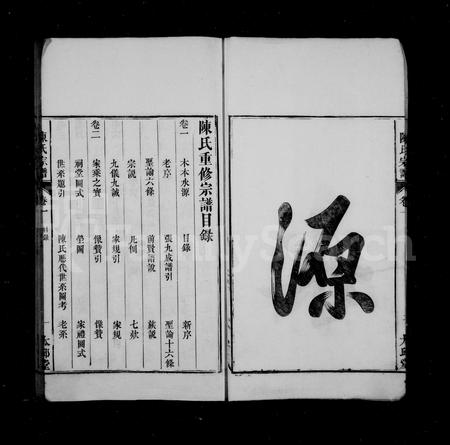 陳氏宗譜
卷一
源
陳氏重修宗譜目錄
卷一 木本水源 目錄 新序
老序 張九成譜引 聖論十六條
聖論六條 前賢譜說 族說
宗說 凡例 七款
九儀九誡 家規引 家規
卷二 家乘之寶 像贊引 像贊
祠堂圖式 塋圖 家禮圖式
世系題引 陳氏歷代世系圖考 老系
陳氏宗譜
卷一
目錄
MySearch